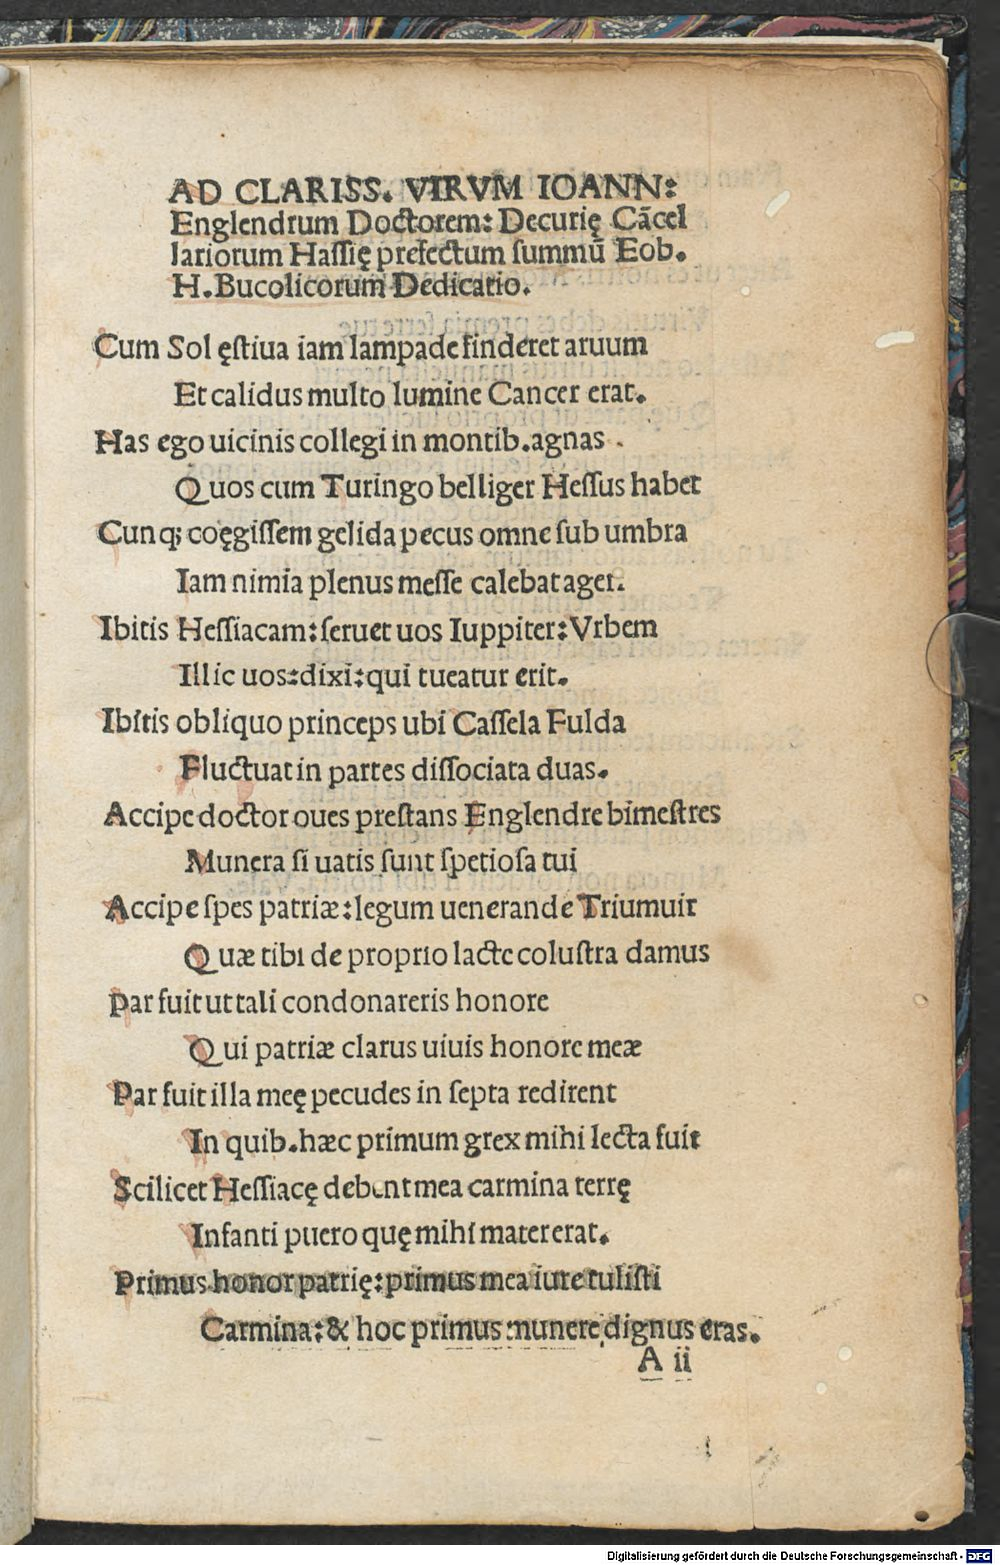 AD CLARISS. VIRVM IOANN:
Englendrum Doctorem: Decurię Cācel
lariorum Haſſię prefectum ſummū Eob.
H. Bucolicorum Dedicatio.
Cum Sol ęſtiua iam lampade finderet aruum
Et calidus multo lumine Cancer erat.
Has ego uicinis collegi in montib. agnas .
Quos cum Turingo belliger Heſſus habet
Cunq; coęgiſſem gelida pecus omne ſub umbra
Iam nimia plenus meſſe calebat ager.
Ibitis Heſſiacam: ſeruet uos Iuppiter: Vrbem
Illic uos: dixi: qui tueatur erit.
Ibitis obliquo princeps ubi Caſſela Fulda
Fluctuat in partes diſſociata duas.
Accipe doctor oues preſtans Englendre bimeſtres
Munera ſi uatis ſunt ſpetioſa tui
Accipe ſpes patriæ: legum uenerande Triumuir
Quæ tibi de proprio lacte coluſtra damus
Par fuit ut tali condonareris honore
Qui patriæ clarus uiuis honore meæ
Par fuit illa meę pecudes in ſepta redirent
In quib. hæc primum grex mihi lecta fuit
Scilicet Heſſiacę debent mea carmina terrę
Infanti puero quę mihi mater erat.
Primus honor patrię: primus mea iure tuliſti
Carmina: & hoc primus munere dignus eras.
A ii
Digitalisierung gefördert durch die Deutsche Forschungsgemeinschaft - DFG